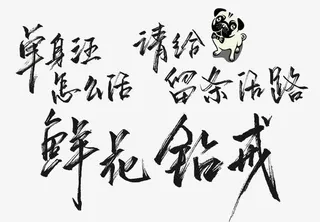 单身汪
怎么活
请给
留条活路
鲜花钻戒